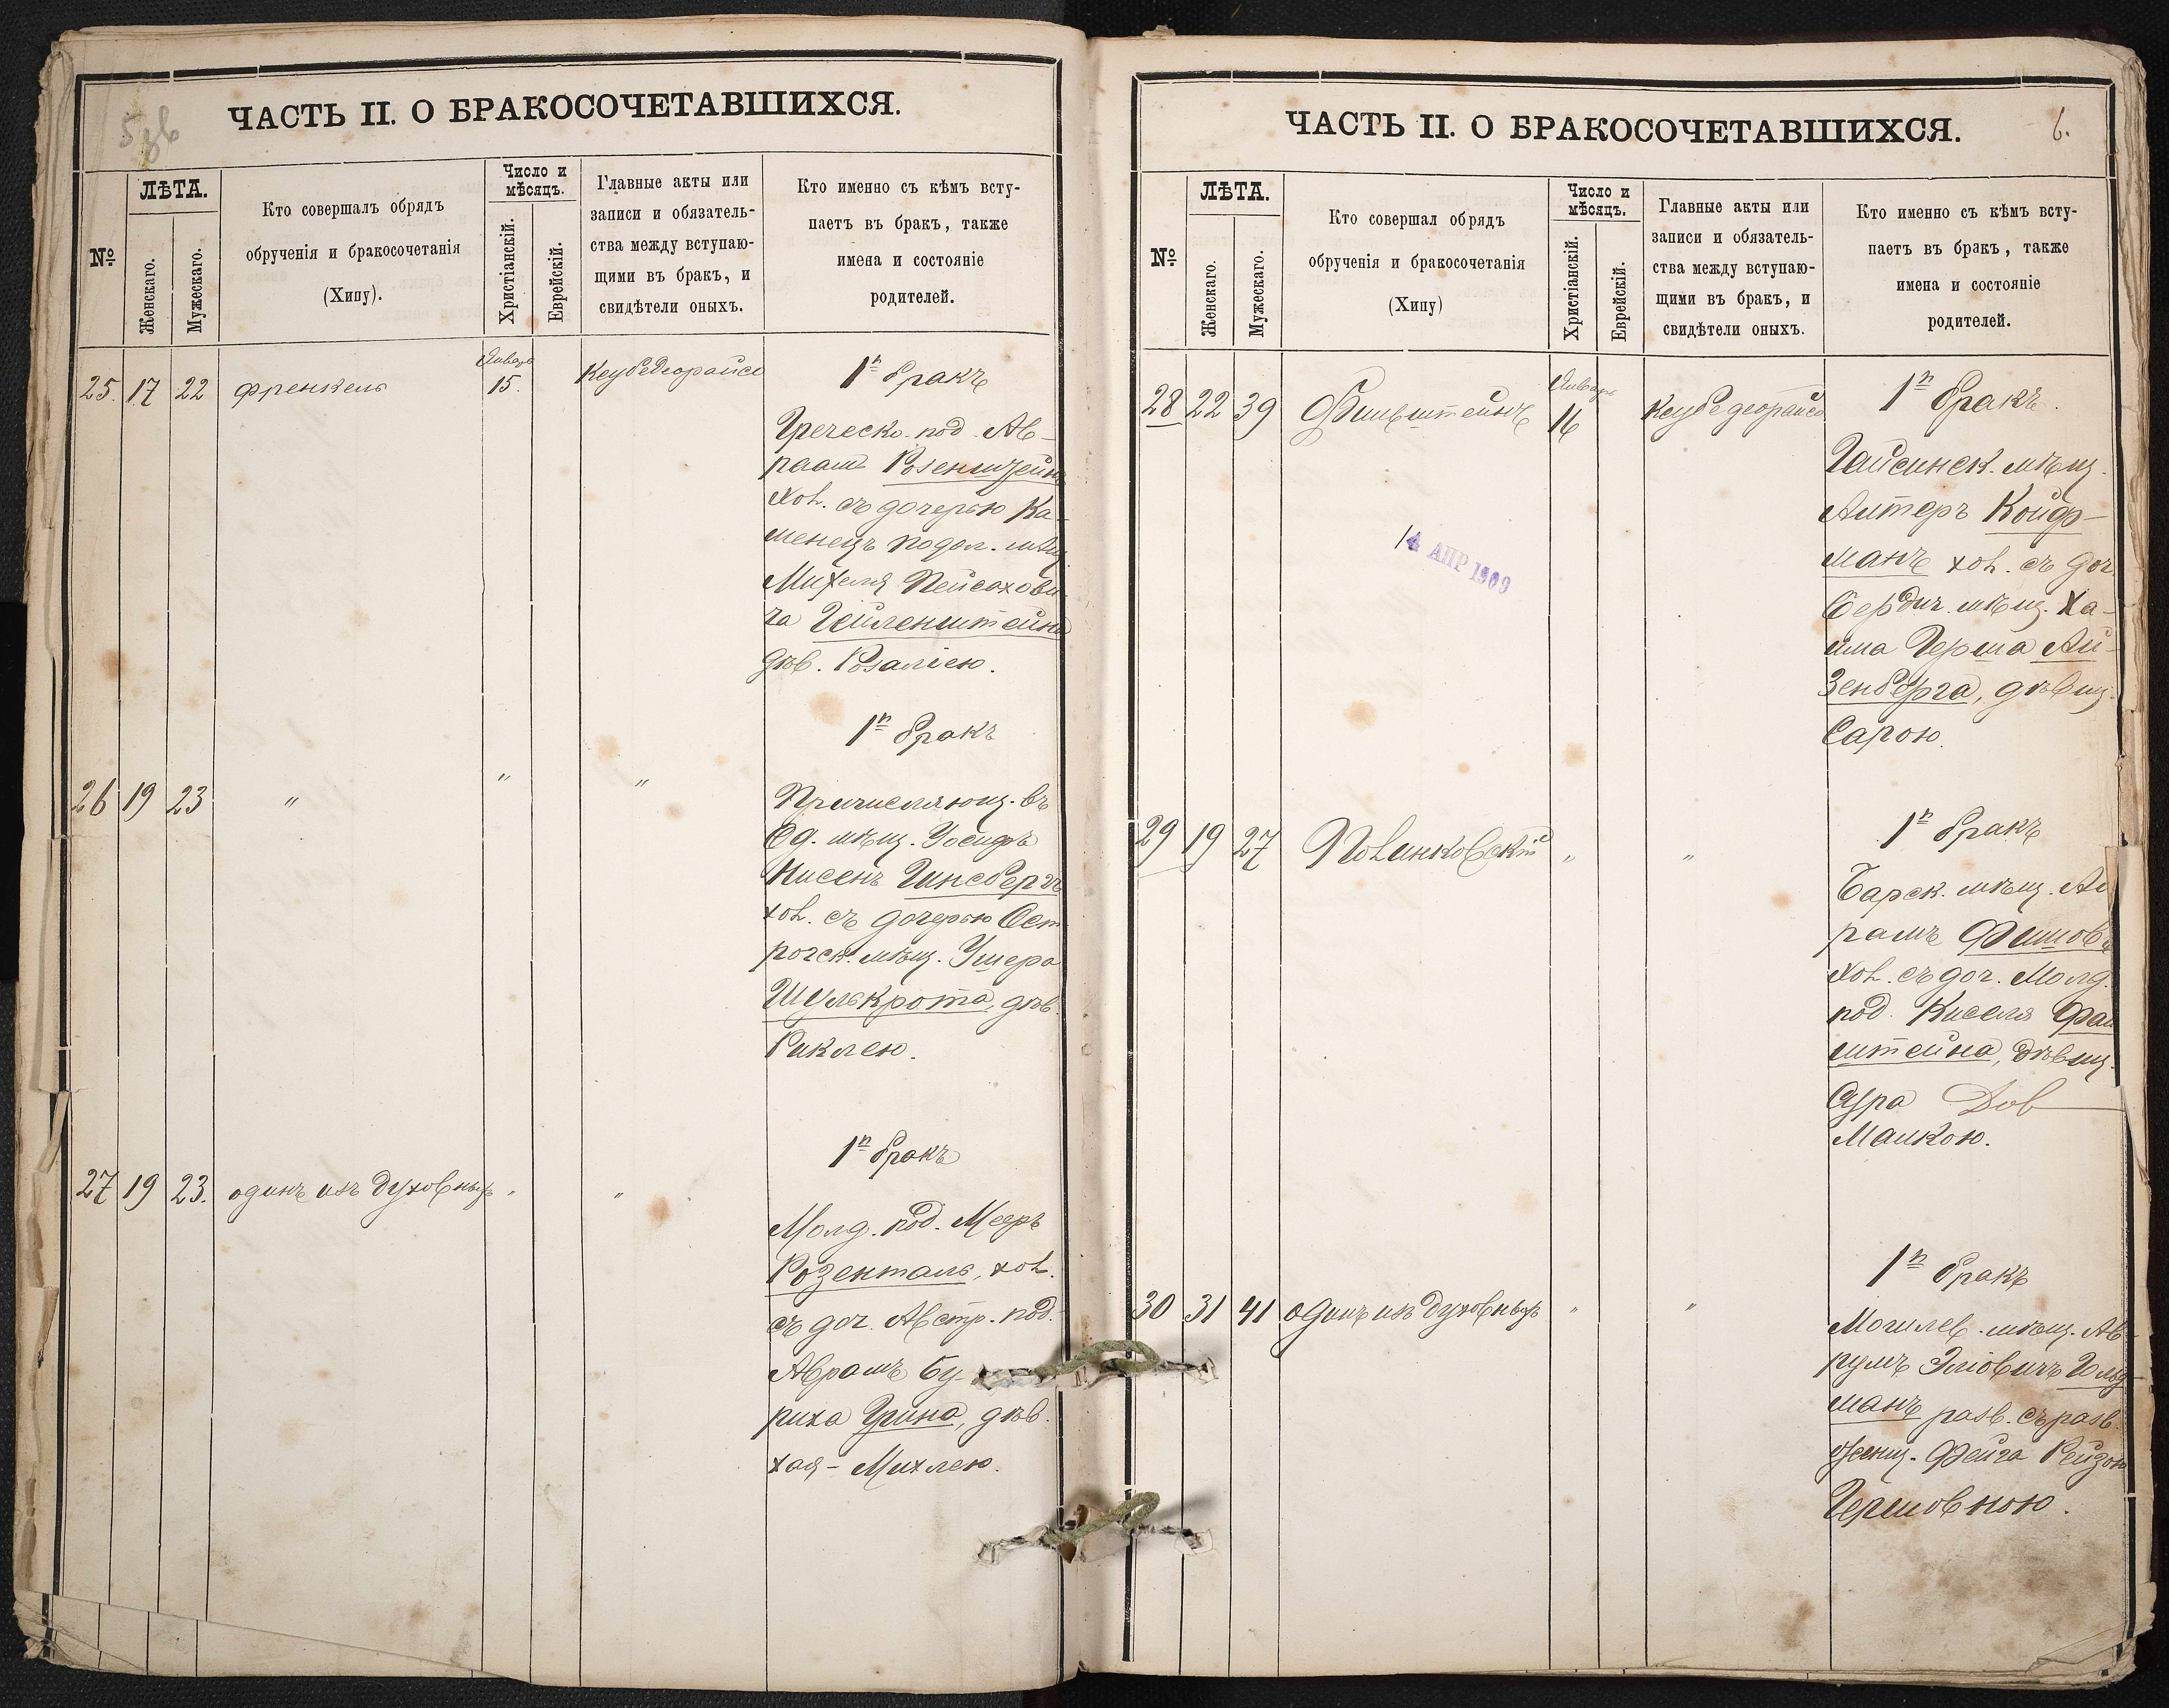 5 об
ЧАСТЬ II. О БРАКОСОЧЕТАВШИХСЯ.
№
ЛѢТА.
Женскаго.
Мужескаго.
Кто совершалъ обрядъ
обрученія и бракосочетанія
(Хипу).
Число и
мѣсяцъ.
Христіанскій.
Еврейскій.
Главные акты или
записи и обязатель-
ства между вступаю-
щими въ бракъ, и
свидѣтели оныхъ.
Кто именно съ кѣмъ всту-
паетъ въ бракъ, также
имена и состояніе
родителей.
25. 17 22 Френкель Январь 15. Кеубедеорайсе
1й бракъ
Греческо. под. Ав-
раам Розенштейнъ
хол. съ дочерью Ка-
менецъ подол. мѣщ
Михеля Пейсахови-
ча Гейленштейна
дѣв. Розаліею.
1й бракъ
26 19 23 " " "
Причисляющ. въ
Од. мѣщ. Іосифъ
Нисенъ Гинсбергъ
хол. съ дочерью Ост
рогск. мѣщ. Ушера
Шулькрота, дѣв.
Риклею.
1й бракъ
27 19 23. одинъ изъ духовныхъ " "
Молд. под. Мееръ
Розенталь, хол.
съ доч. Австр. под.
Аврамъ Бу-
риха Грина, дѣв.
Хая-Михлею.
6.
ЧАСТЬ II. О БРАКОСОЧЕТАВШИХСЯ.
№
ЛѢТА.
Женскаго.
Мужескаго.
Кто совершал обрядъ
обрученія и бракосочетанія
(Хипу)
Число и
мѣсяцъ.
Христіанскій.
Еврейскій.
Главные акты или
записи и обязатель-
ства между вступаю-
щими въ бракъ, и
свидѣтели оныхъ.
Кто именно съ кѣмъ всту-
паетъ въ бракъ, также
имена и состояніе
родителей.
28 22 39 Январь 16 Кеубедеорайсе
1й бракъ.
Гайсинск. мѣщ.
Алтеръ Койф-
манъ хол. съ доч
Бердич. мѣщ. Ха-
има Герша Ай-
зенберга, дѣвиц.
Сарою.
14 АПР 1909
1й бракъ
29 19 27 " "
Барск. мѣщ. Ав
рамъ
хол. съ доч. Молд.
под. Киселя Фай
штейна, дѣвиц.
Сура Дов
Малкою.
1й бракъ
30 31 41 одинъ изъ духовныхъ " "
Могилев. мѣщ. Ав-
румъ Эліовичъ Гольд-
манъ разв. съ разв.
женщ. Фейга Рейзою
Гершовною.